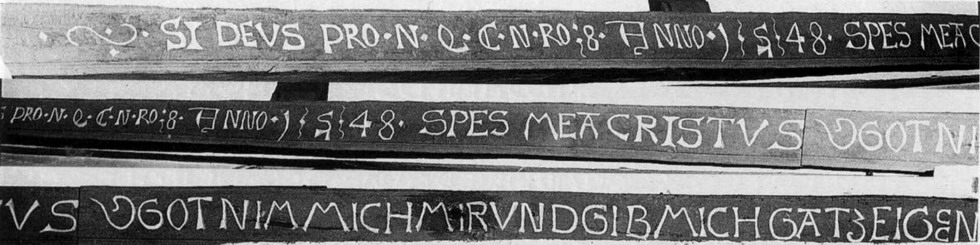 SI DEVS PRO·N·Q·C·N·RO:8· ANNO·1548· SPES MEA
PRO·N·Q·C·N·RO:8· ANNO·1548· SPES MEA CRISTVS OGOT NI
VS OGOT NIM MICH MIR VND GIB MICH GATZ EIGEN